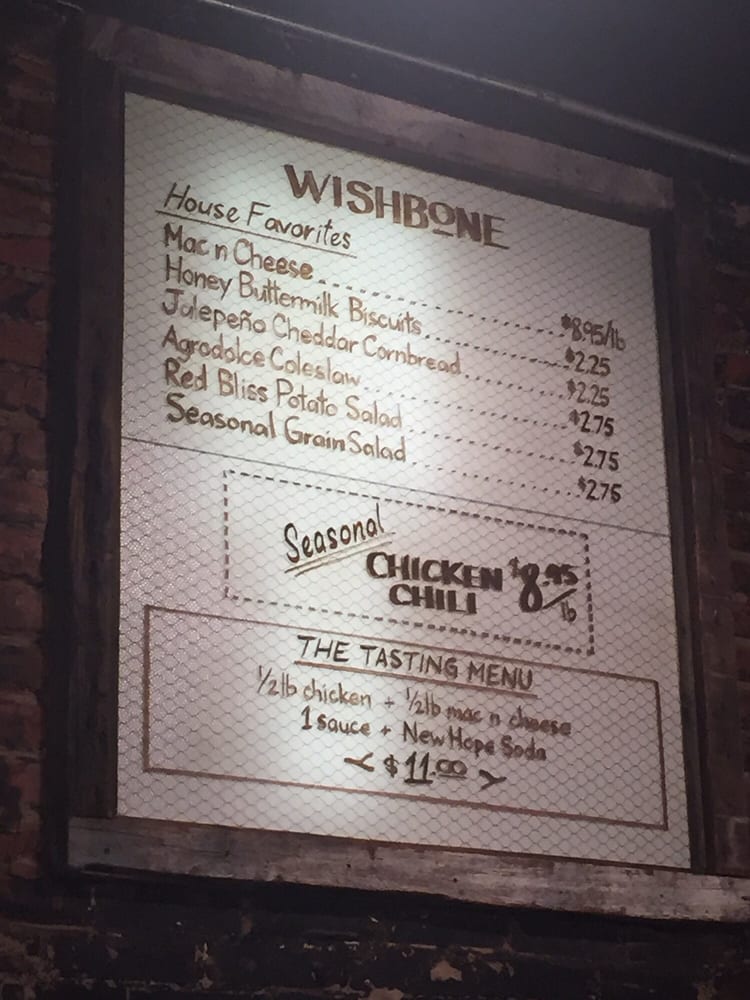 WISHBONE
House Favorites
Mac n Cheese $8.95/lb
Honey Buttermilk Biscuits $2.25
Jalepeño Cheddar Cornbread $2.25
Agrodolce Coleslaw $2.75
Red Bliss Potato Salad $2.75
Seasonal Grain Salad $2.75
Seasonal
CHICKEN CHILI $8.95/lb
THE TASTING MENU
1/2lb chicken + 1/2lb mac n cheese
1 sauce + New Hope Soda
$11.00